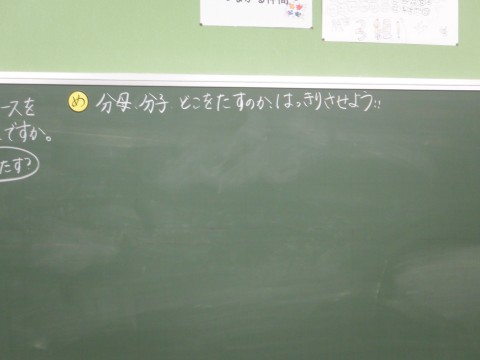 め 分母、分子 どこをたすのか、はっきりさせよう!!
ースを
ですか。
たす?